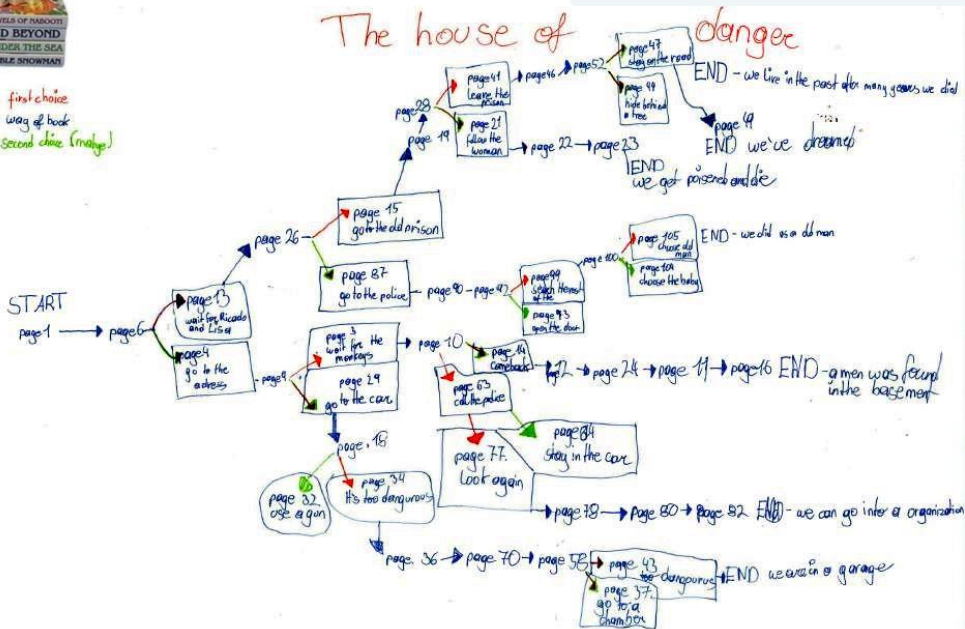 The house of danger
D BEYOND
DER THE SEA
BLE SNOWMAN
first choice
way of book
START
page 1
page 6
page 13
wait for Ricardo
and Lisa
page 4
go to the
adress
page 26
page 15
go to the old prison
page 87
go to the police
page 19
page 28
page 41
leave the
prison
page 21
follow the
woman
page 46
page 52
page 47
stay on the road
page 49
hide behind
a tree
END - we live in the past after many years we died
page 49
END we've dreamed
page 22
page 23
END
we get poisened and die
page 90
page 92
page 99
page 93
open the door
page 100
page 105
choose old
man
page 104
choose the baby
END - we did as a old man
page 9
page 3
wait for the
monkeys
page 29
go to the car
page 10
page 14
comeback
page 63
call the police
page 12
page 24
page 11
page 16
END - a men was found
in the basement
page 77.
Look again
page 84
stay in the car
page 78
page 80
page 82
END - we can go inter a organization
page. 18
page 32
use a gun
page 34
It's too dangurous
page. 36
page 70
page 58
page 43
too dangourus
page 37.
go to a
chamber
END we are in a garage